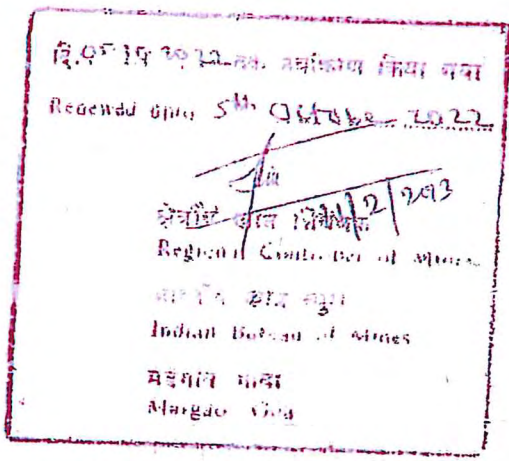 दि. 05 10 2022 तक नवीकरण किया गया
Renewed upto 5th October 2022
क्षेत्रीय खान नियंत्रक
Regional Controller of Mines
भारतीय खान ब्यूरो
Indian Bureau of Mines
मडगांव गोवा
Margao Goa